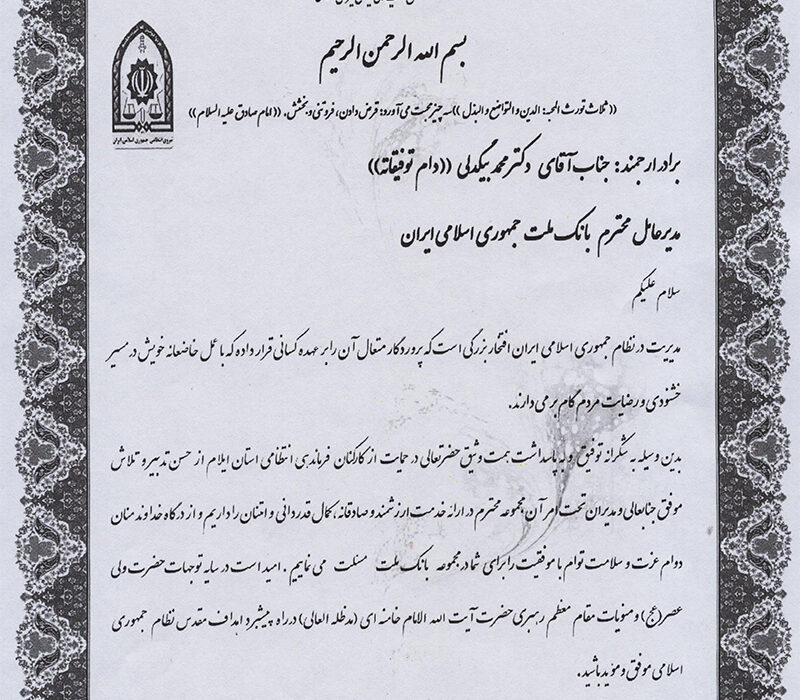 بسم الله الرحمن الرحیم
((ثلاث تورث المحبه: الدین والتواضع والبذل)) سه چیز محبت می آورد: قرض دادن، فروتنی و بخشش. ((امام صادق علیه السلام))
نیروی انتظامی جمهوری اسلامی ایران
برادر ارجمند: جناب آقای دکتر محمد بیگدلی ((دام توفیقاته))
مدیرعامل محترم بانک ملت جمهوری اسلامی ایران
سلام علیکم
مدیریت در نظام جمهوری اسلامی ایران افتخار بزرگی است که پروردگار متعال آن را بر عهده کسانی قرار داده که با عمل خاضعانه خویش در مسیر
خشنودی و رضایت مردم گام بر می دارند.
بدین وسیله به شکرانه توفیق و به پاسداشت همت وثیق حضرتعالی در حمایت از کارکنان فرماندهی انتظامی استان ایلام از حسن تدبیر و تلاش
موفق جنابعالی و مدیران تحت امر آن مجموعه محترم در ارائه خدمت ارزشمند و صادقانه، کمال قدردانی و امتنان را داریم و از درگاه خداوند منان
دوام عزت و سلامت توام با موفقیت را برای شما در مجموعه بانک ملت مسئلت می نماییم. امید است در سایه توجهات حضرت ولی
عصر(عج) و منویات مقام معظم رهبری حضرت آیت الله الامام خامنه ای (مدظله العالی) در راه پیشبرد اهداف مقدس نظام جمهوری
اسلامی موفق و موید باشید.